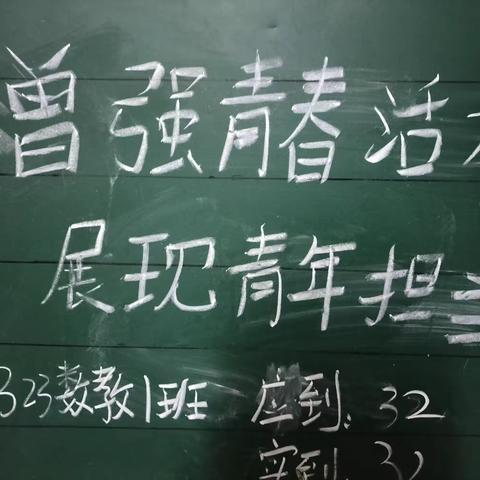 增强青春活
展现青年担
323数教1班 应到: 32
实到 32